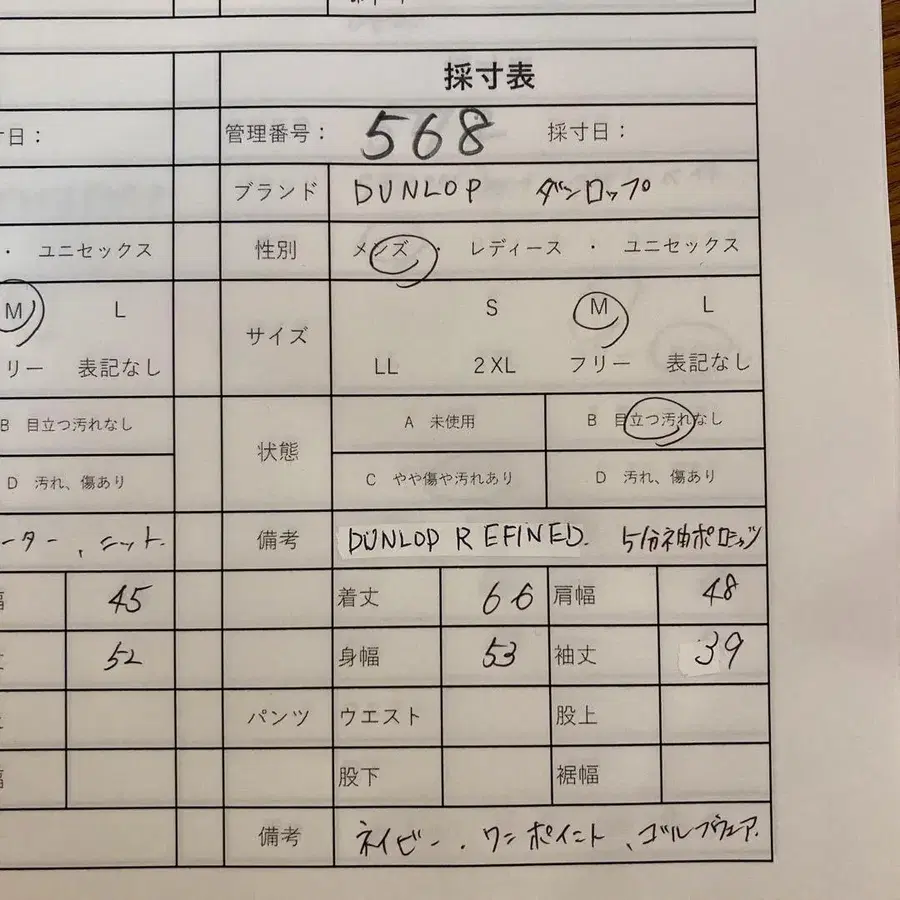 採寸表
日：
管理番号： 568 採寸日：
ブランド DUNLOP ダンロップ
・ ユニセックス
性別 メンズ ・ レディース ・ ユニセックス
M L
リー 表記なし
サイズ S M L
LL 2XL フリー 表記なし
B 目立つ汚れなし
D 汚れ、傷あり
状態 A 未使用 B 目立つ汚れなし
C やや傷や汚れあり D 汚れ、傷あり
ーター、ニット.
備考 DUNLOP REFINED. 5分袖ポロシャツ
45
52
着丈 66 肩幅 48
身幅 53 袖丈 39
パンツ ウエスト 股上
股下 裾幅
備考 ネイビー、ワンポイント、ゴルフウェア.